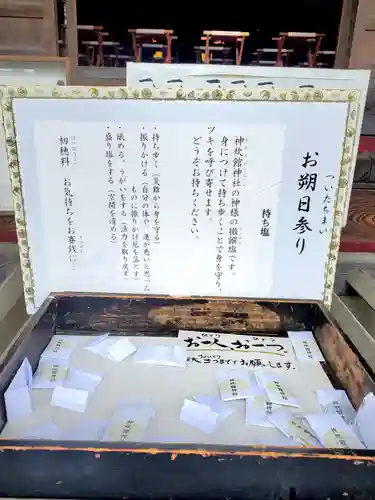 お朔日参り
ついたちまい
持ち塩
神炊館神社の神様の撤饌塩です。
身につけて持ち歩くことで身を守り、
ツキを呼び寄せます。
どうぞお持ちください。
・持ち歩く(災難から身を守る)
・振りかける(自分の体や、運が悪いと思った
ものに振りかけ厄を落とす)
・舐める、うがいをする(活力を取り戻す)
・盛り塩をする(玄関を清める)
初穂料 お気持ちをお賽銭に…
はつほりょう
お一人 お一つ
お一人さま1つまででお願いします。